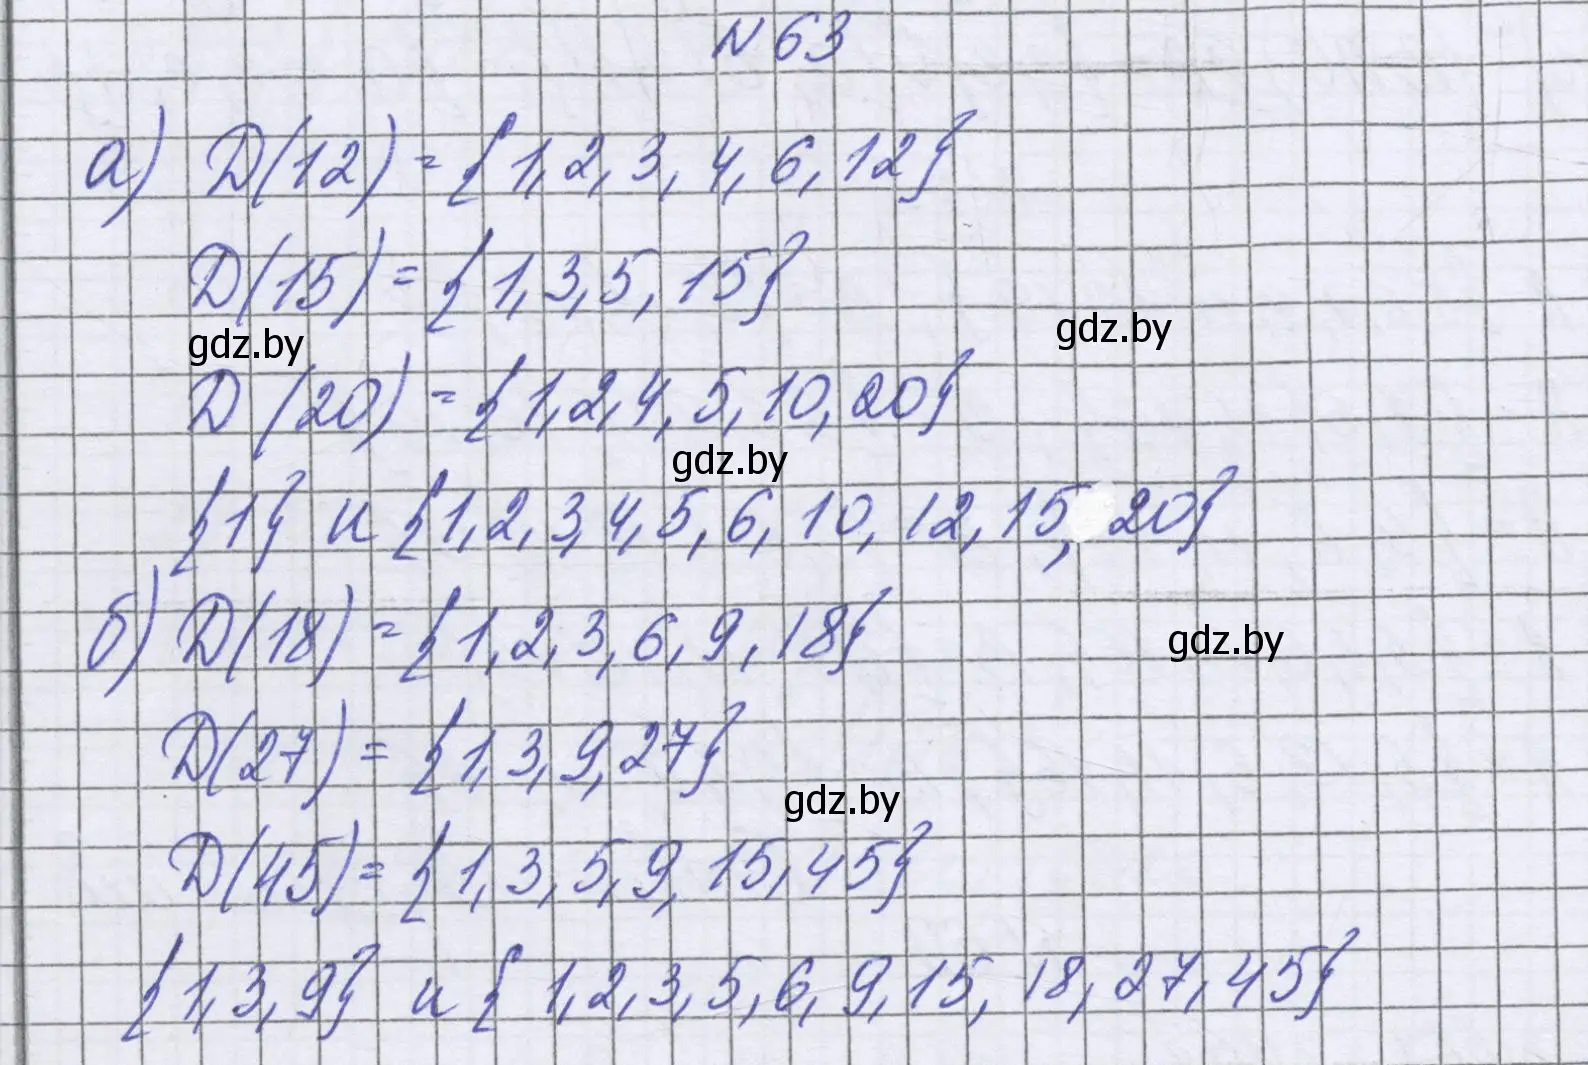 N 63
а) D(12) = {1, 2, 3, 4, 6, 12}
D(15) = {1, 3, 5, 15}
gdz.by
gdz.by
D (20) = {1, 2, 4, 5, 10, 20}
gdz.by
{1} и {1, 2, 3, 4, 5, 6, 10, 12, 15, 20}
б) D(18) = {1, 2, 3, 6, 9, 18}
gdz.by
D(27) = {1, 3, 9, 27}
gdz.by
D(45) = {1, 3, 5, 9, 15, 45}
{1, 3, 9} и {1, 2, 3, 5, 6, 9, 15, 18, 27, 45}